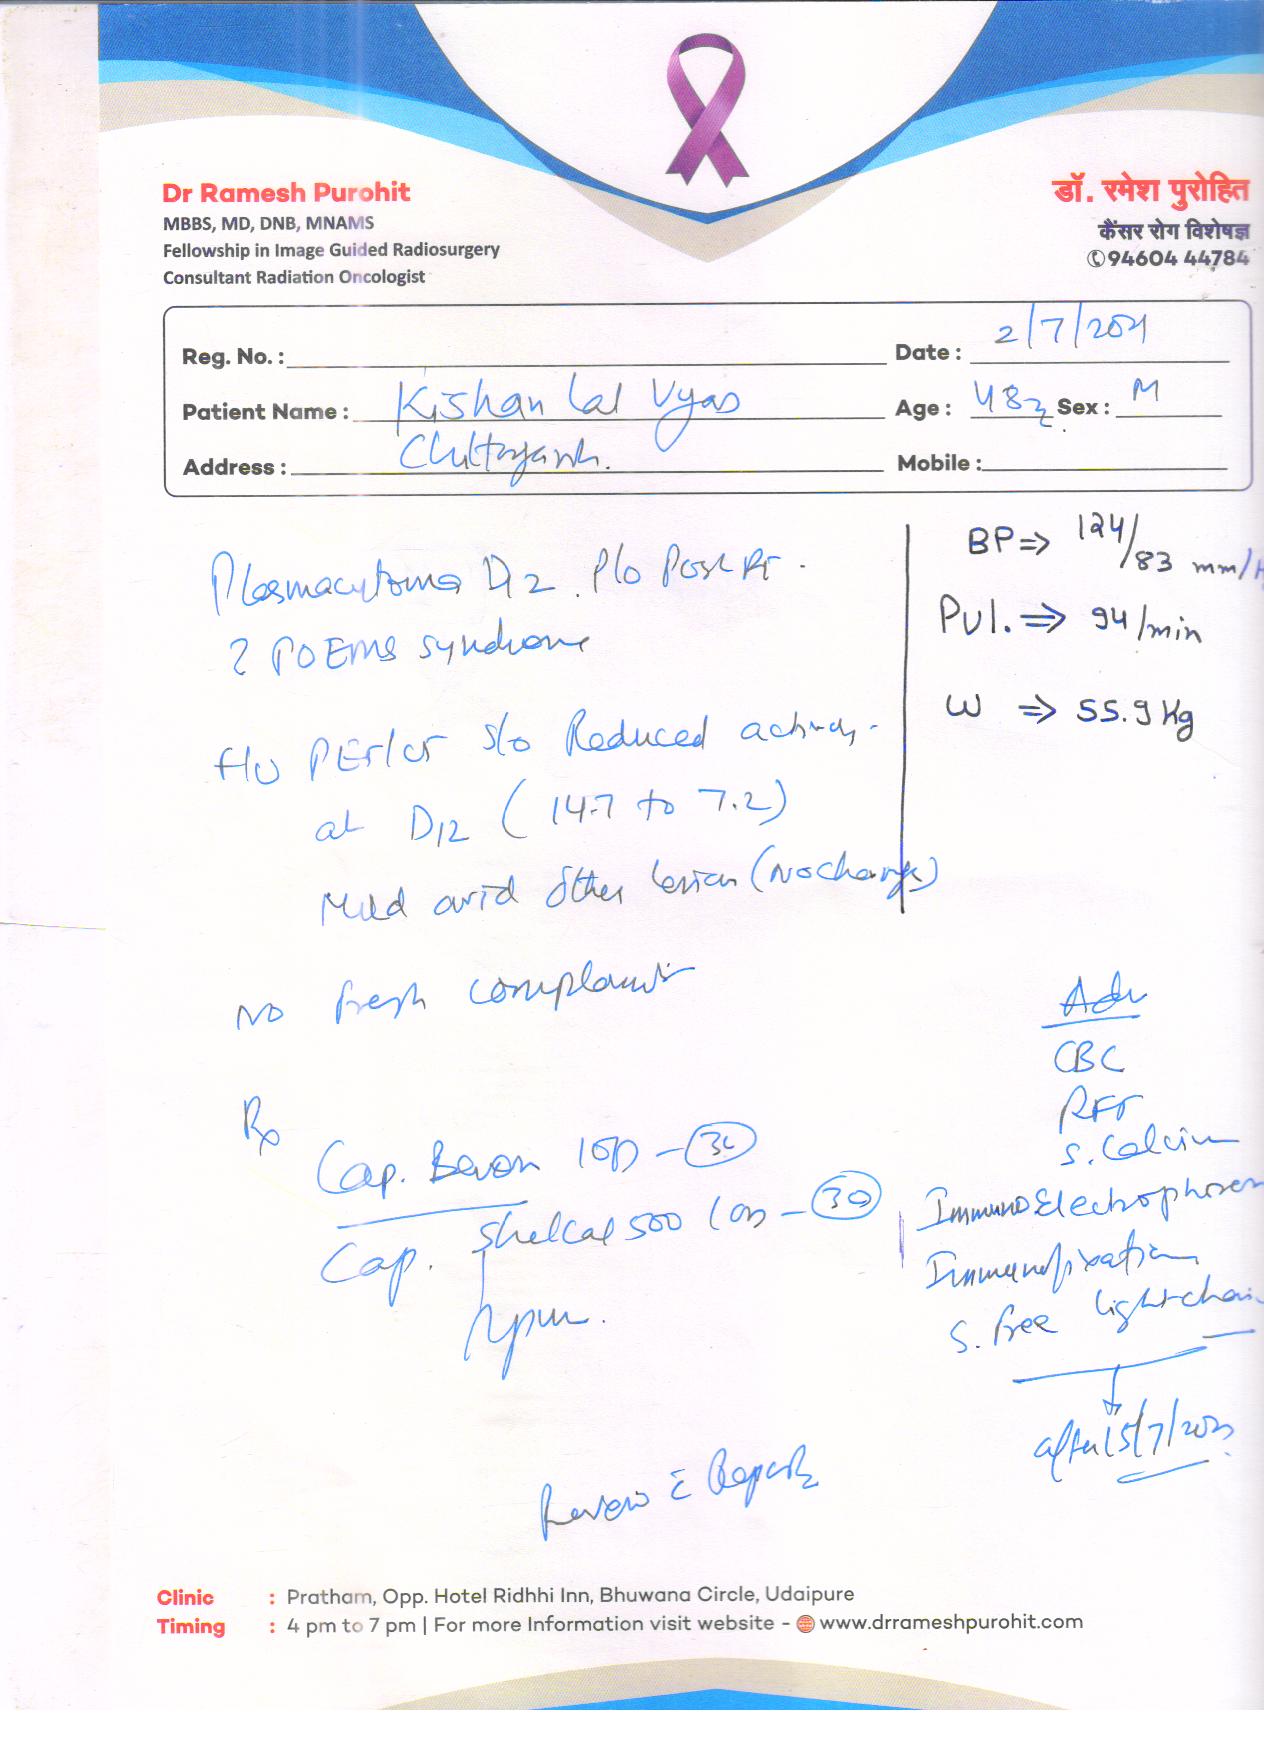 Dr Ramesh Purohit
MBBS, MD, DNB, MNAMS
Fellowship in Image Guided Radiosurgery
Consultant Radiation Oncologist
डॉ. रमेश पुरोहित
कैंसर रोग विशेषज्ञ
94604 44784
Reg. No. :
Date : 2/7/2021
Patient Name : Kishan Lal Vyas
Age : 48 Sex : M
Address :
Mobile :
BP ⇒ 124/83 mm/H
Pul. ⇒ 94/min
W ⇒ 55.9 Kg
Plasmacytoma D12 . P/o Post RT .
? POEMS syndrome
F/U PET/CT s/o Reduced activity
at D12 ( 14.7 to 7.2 )
Mild avid other lesion (No change)
No fresh complaint
Rx
Cap. Bevon 1 OD - 30
Cap. Shelcal 500 1 OD - 30
Adv
CBC
RFT
S. Calcium
ImmunoElectrophores
Immunofixation
S. free light chai
after 15/7/2021
Review c̄ Reports
Clinic : Pratham, Opp. Hotel Ridhhi Inn, Bhuwana Circle, Udaipure
Timing : 4 pm to 7 pm | For more Information visit website - www.drrameshpurohit.com